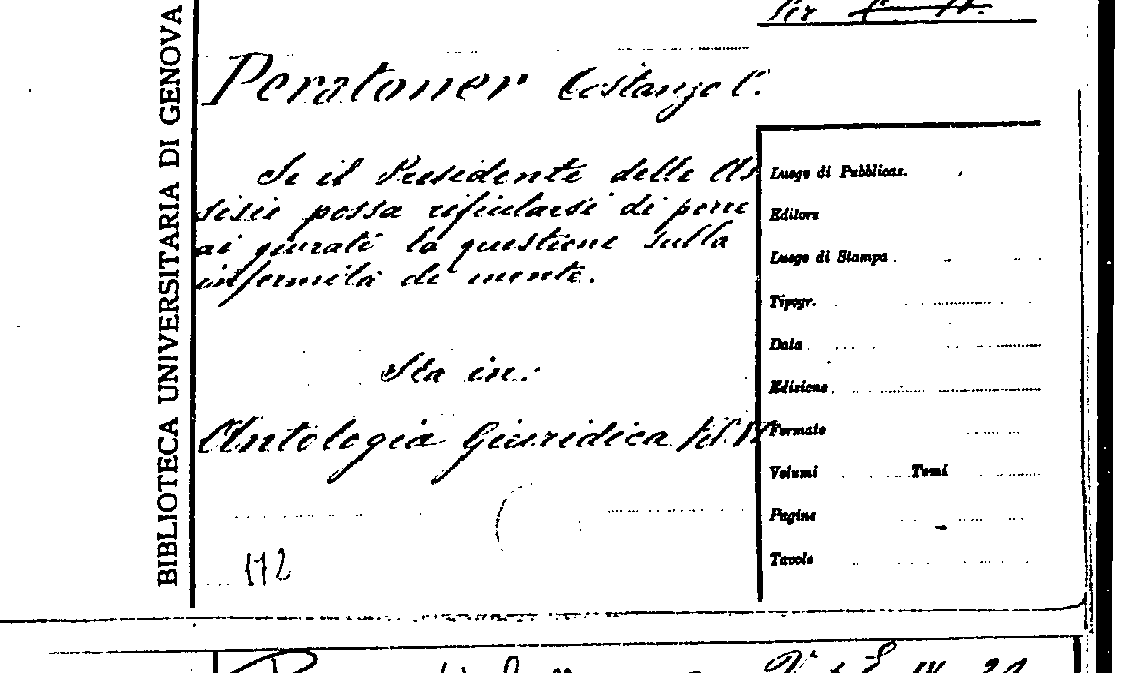 Per
BIBLIOTECA UNIVERSITARIA DI GENOVA
Peratoner Costanzo C.
Se il Presidente delle As
sisie possa rifiutarsi di porre
ai giurati la questione sulla
infermità di mente.
Sta in:
Antologia Giuridica Vol.
112
Luogo di Pubblicaz.
Editore
Luogo di Stampa
Tipogr.
Data
Edizione
Formato
Volumi Tomi
Pagine
Tavole